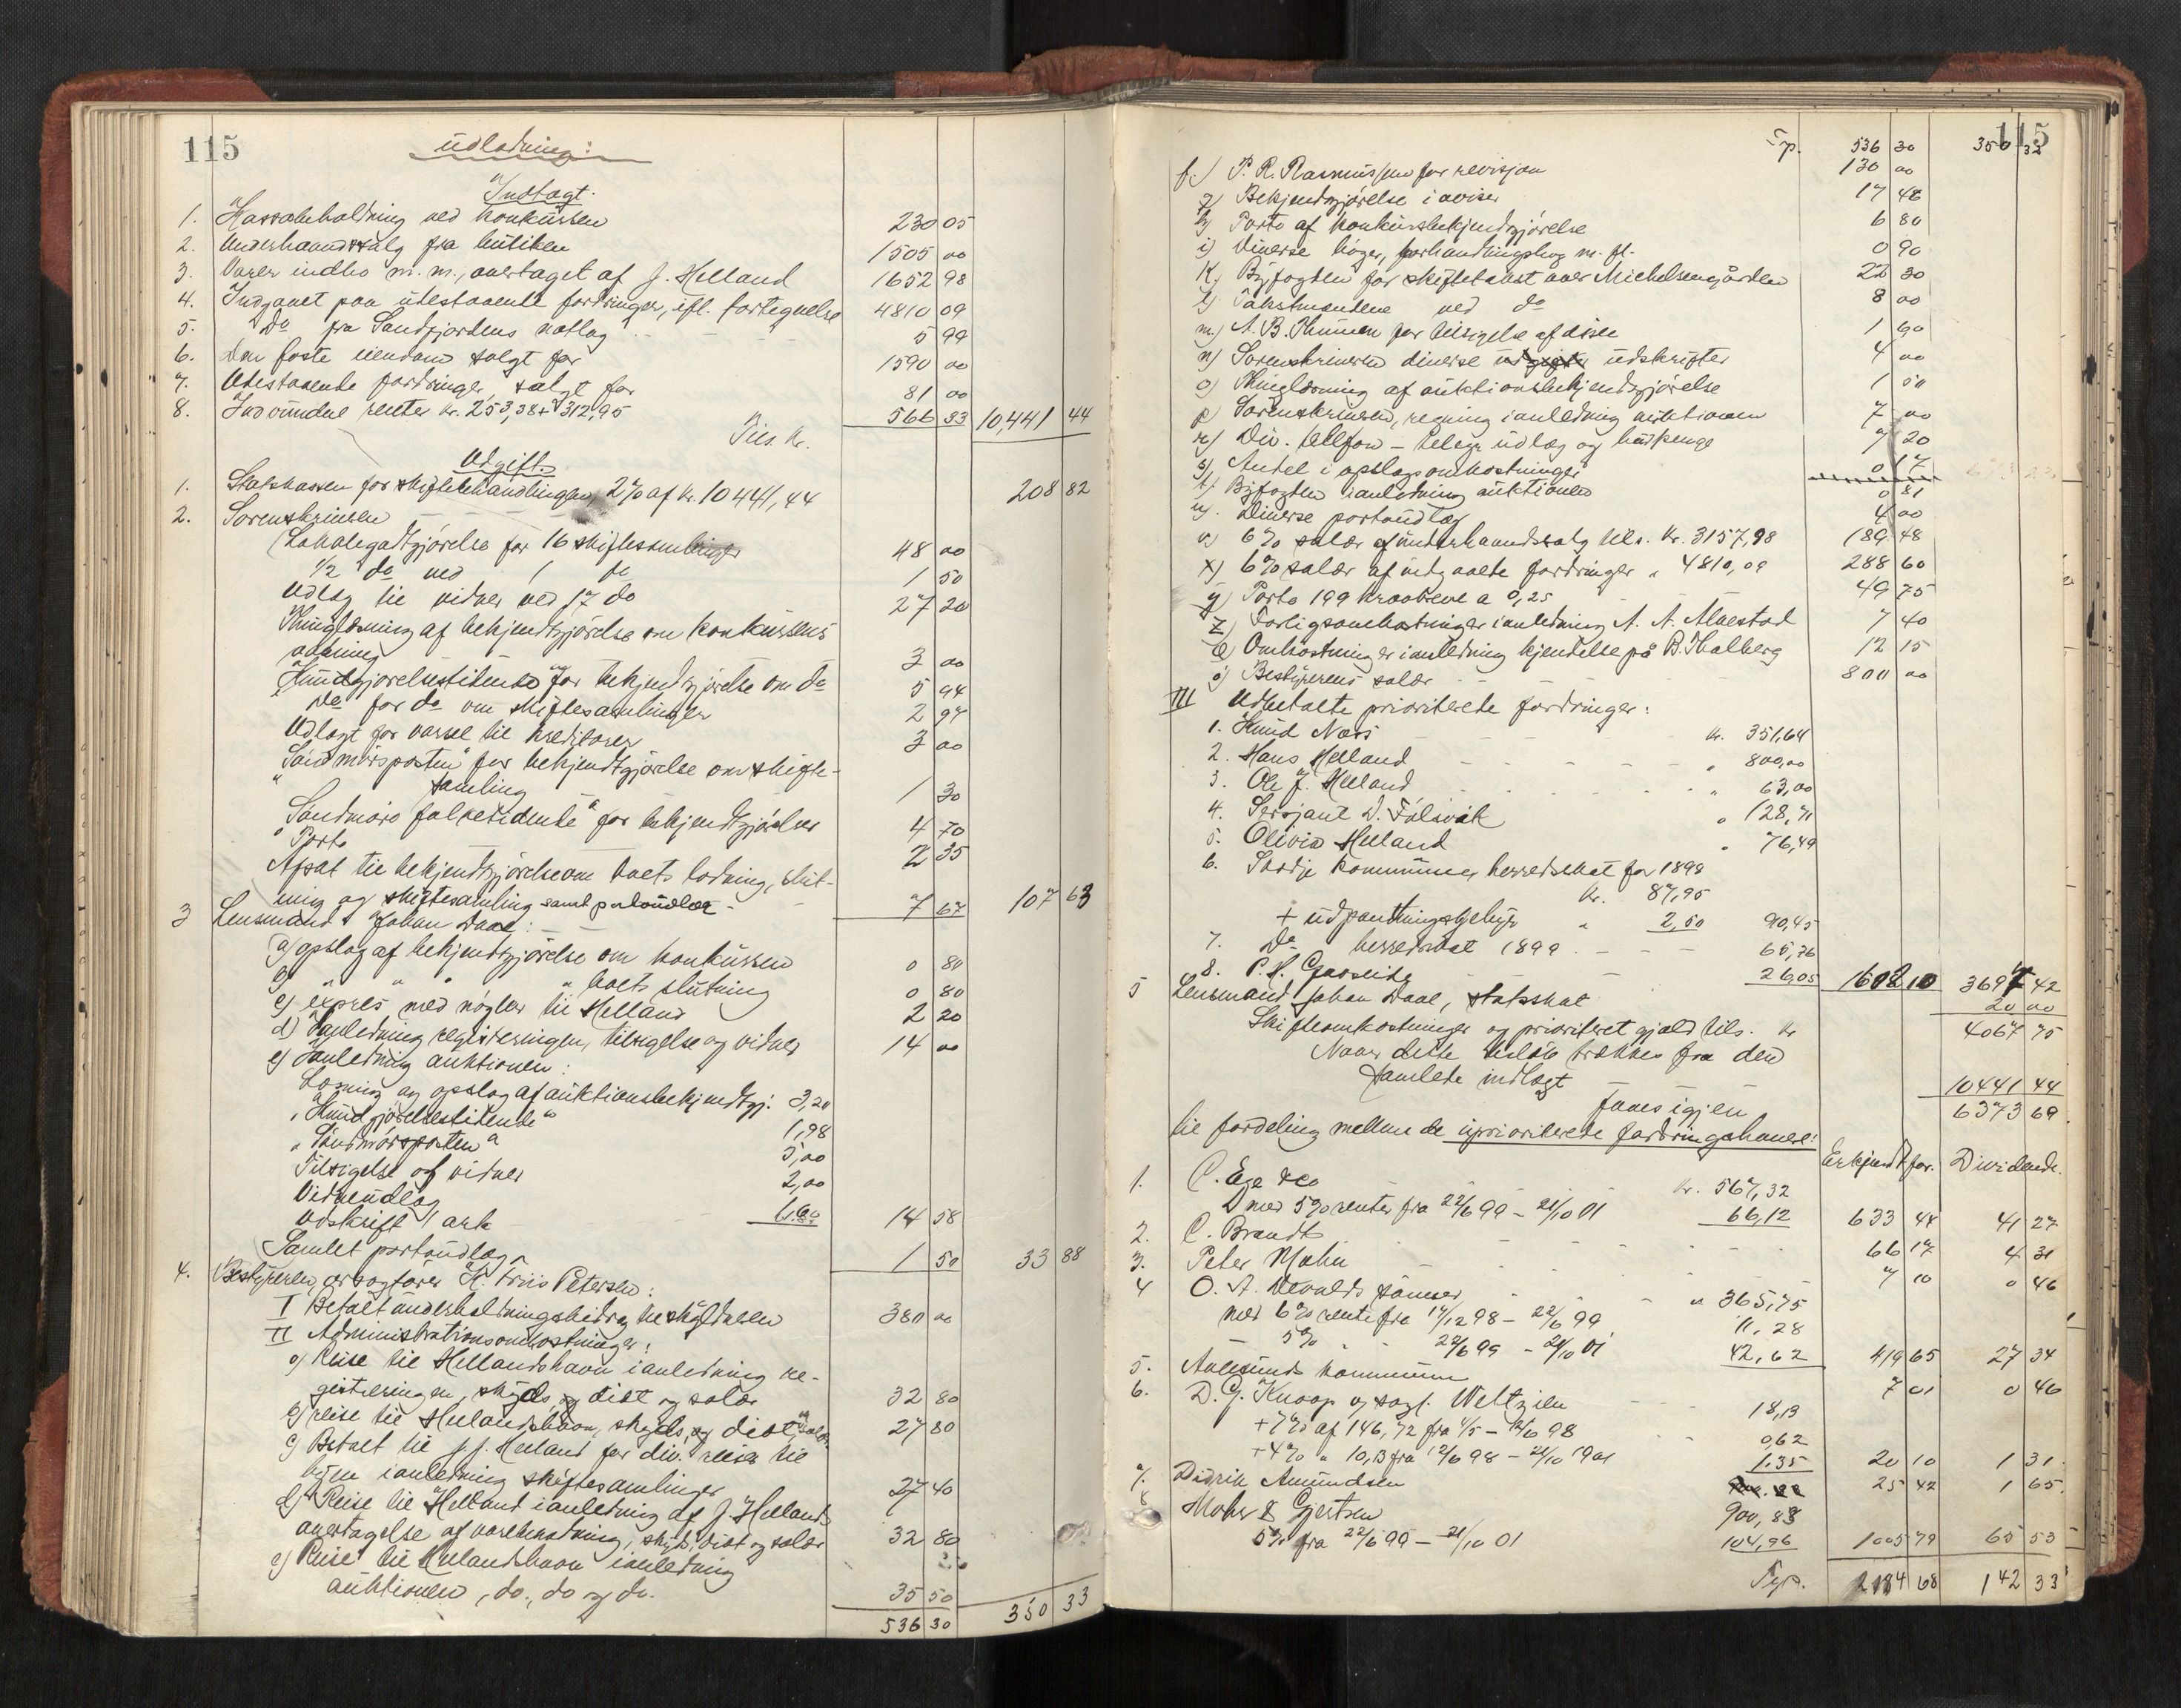 115
Udlodning:
Indtægt.
1. Kassabeholdning ved konkursen 230 05
2. Underhaandssalg fra butiken 1505 00
3. Varer indbo m. m., overtaget af J. Helland 1652 98
4. Indgaaet paa udestaaende fordringer, ifl. fortegnelse 4810 09
5. Do fra Sandfjordens notlag 5 99
6. Den faste eiendom solgt for 1590 00
7. Udestaaende fordringer solgt for 81 00
8. Indvundne renter kr. 253,38 + 312,95 566 33 10,441 44
Tils. kr.
Udgift.
1. Statskassen for skiftebehandlingen 2% af kr. 10441,44 208 82
2. Sorenskriveren
Lokalegodtgjörelse for 16 skiftesamlinger 48 00
1/2 do ved 1 do 1 50
Udlæg til vidner ved 17 do 27 20
Thinglæsning af bekjendtgjörelse om konkursens
aabning 3 00
"Kundgjörelsestidende" for bekjendtgjörelse om do 5 94
Do for do om skiftesamlinger 2 97
Udlagt for varsel til kreditorer 3 00
"Söndmörsposten" for bekjendtgjörelse om skifte-
samling 1 30
"Söndmöre folketidende" for bekjendtgjörelser 4 70
Porto 2 35
Afsat til bekjendtgjörelse om boets lodning, slut-
ning og skiftesamling samt portoudlæg 7 67 107 63
3 Lensmand Johan Daae:
a) opslag af bekjendtgjörelse om konkursen 0 80
b) " " " " boets slutning 0 80
c) expres med nøgler til Helland 2 20
d) Ianledning registreringen, tilsigelse og vidner 14 00
e) Ianledning auktionen:
Læsning og opslag af auktionsbekjendtgj. 3,20
"Kundgjörelsestidende" 1,98
"Söndmörsposten" 3,00
Tilsigelse af vidner 2,00
Vidneudlæg
Udskrift 1 ark 14 58
Samlet portoudlæg 1 50 33 88
4. Bestyreren, overrettssagförer K. Friis Petersen:
I Betalt underholdningsbidrag til skyldneren 380 00
II Administrationsomkostninger:
a) Reise til Hellandshavn ianledning re-
gistreringen, skyds, diæt og salær 32 80
b) reise til Hellandshavn, skyds, og diæt, og salær 27 80
c) Betalt til J. J. Helland for div. reiser til
byen ianledning skiftesamlinger 27 40
d) Reise til Helland ianledning af J. Hellands
overtagelse af varebeholdning, skyds, diæt og salær 32 80
e) Reise til Hellandshavn ianledning
auktionen, do., do og do. 35 50
536 30 350 33
115
Tp. 536 30 350 32
f.) P. R. Rasmussen for revisjon 130 00
g) Bekjendtgjörelse i aviser 17 48
h) Porto af konkursbekjendtgjörelse 6 80
i) Diverse böger, forhandlingsbog m. fl. 0 90
k) Byfogden for skiftetakst over Michelsengården 22 30
l) Takstmændene ved do 8 00
m.) A. B. Thunem for tilsigelse af disse 1 60
n) Sorenskriveren diverse udskrifter 4 00
o) Thinglæsning af auktionsbekjendtgjörelse 1 50
p) Sorenskriveren, regning ianledning auktionen 7 00
r) Div. telefon - telegr. udlæg og budpenge 7 20
s) Andel i opslagsomkostninger 0 17
t) Byfogden ianledning auktionen 0 81
u) Diverse portoudlæg 4 00
v) 6% salær af underhaandssalg tils. kr. 3157,98 189 48
x) 6% salær af indgaaede fordringer " 4810,09 288 60
y) Porto 199 kravbreve a 0,25 49 75
z) Forligsomkostninger ianledning A. A. Alnestad 7 40
æ) Omkostninger ianledning kjendelse på B. Thalberg 12 15
ø) Bestyrerens salær 800 00
III Udbetalte prioriterede fordringer:
1. Knud Næss kr. 351,64
2. Hans Helland " 800,00
3. Ole J. Helland " 63,00
4. Serjant D. Fölsvik " 128,71
5. Olivia Helland " 76,49
6. Skodje kommune herredsskat for 1898
kr. 87,95
+ udpantningsgebyr " 2,50 90,45
7. Do herredsskat 1899 65,76
8. P. H. Gjøseide 26,05 1602 10 3697 42
5 Lensmand Johan Daae, statsskat 20 00
Skifteomkostninger og prioriteret gjæld tils. kr 4067 75
Naar dette beløb trækkes fra den
samlede indtægt 10441 44
faaes igjen 6373 69
til fordeling mellem de uprioriterede fordringshavere:
Erkjendt for. Dividende.
1. C. Ege & Co kr. 567,32
med 5% renter fra 22/6 99 - 21/10 01 66,12 633 44 41 27
2. C. Brandt 66 17 4 31
3. Peter Mohn 7 10 0 46
4 O. A. Devolds sönner " 365,75
med 6% rente fra 17/12 98 - 22/6 99 11,28
- 5% " " 22/6 99 - 21/10 01 42,62 419 65 27 34
5. Aalesunds kommune 7 01 0 46
6. D. G. Knoop v/ sagf. Weltzien 18,13
+ 7% af 146,72 fra 4/5 - 12/6 98 0,62
+ 4% " 10,13 fra 12/6 98 - 21/10 1901 1,35 20 10 1 31
7. Didrik Amundsen 25 42 1 65
8 Mohr & Gjertsen 900,83
5% fra 22/6 99 - 21/10 01 104,96 1005 79 65 53
Trp. 2184 68 142 33